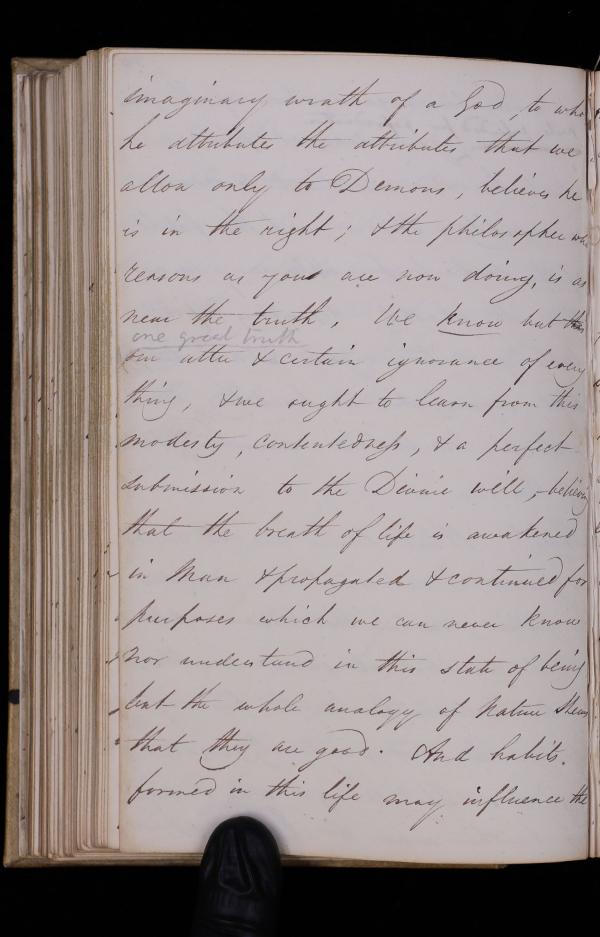 imaginary wrath of a God, to who
he attributes the attributes that we
allow only to Demons, believes he
is in the right; & the philosopher who
reasons as you are now doing, is as
near the truth. We know but this
one great truth
our utter & certain ignorance of every
thing, & we ought to learn from this
modesty, contentedness, & a perfect
submission to the Divine will, – believing
that the breath of life is awakened
in Man & propagated & continued for
purposes which we can never know
nor understand in this state of being
but the whole analogy of Nature shews
that they are good. And habits
formed in this life may influence the